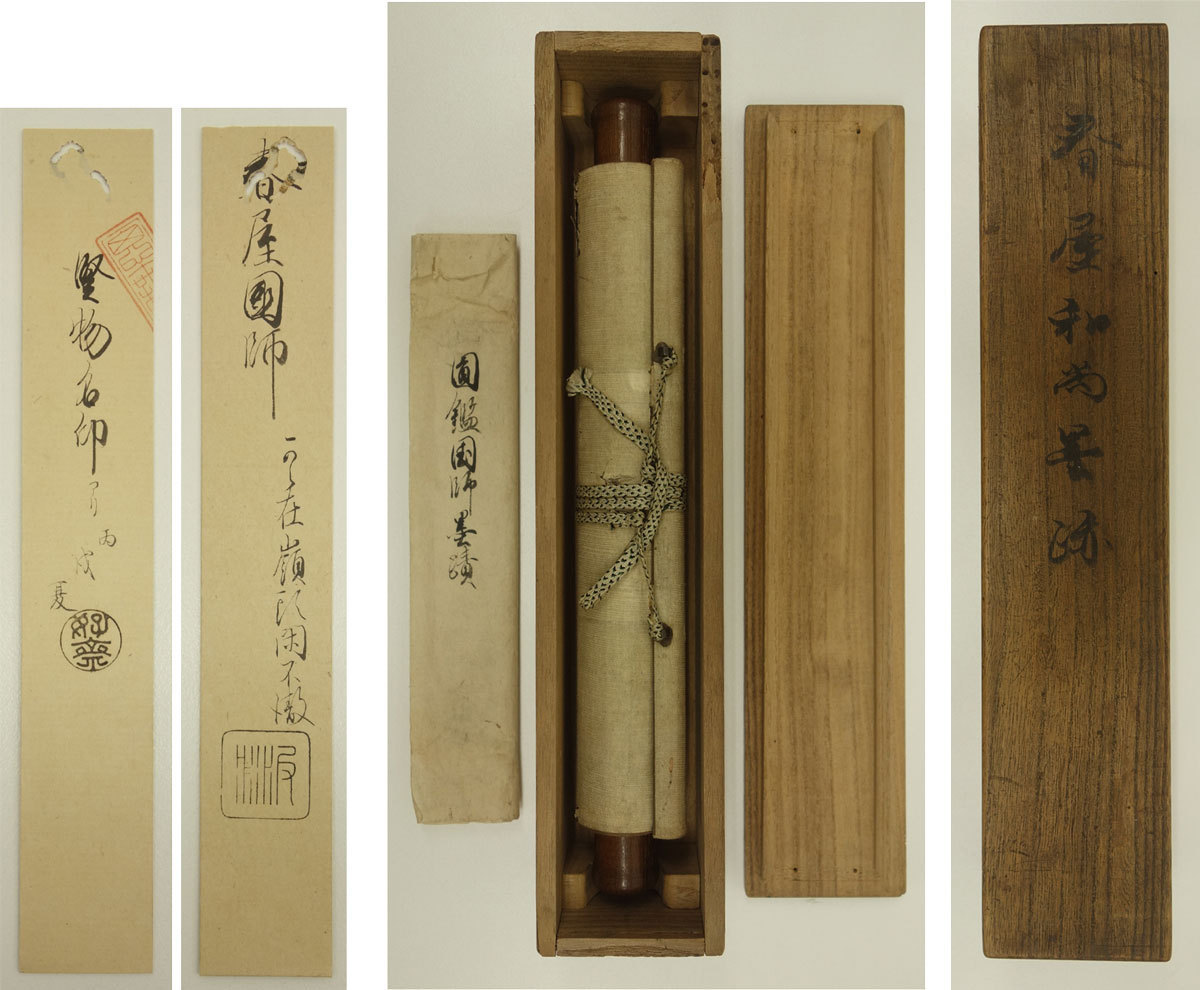 竪物名印
丙戌
夏
春屋國師
在嶺頭閑不徹
圓鑑国師墨蹟
春屋和尚墨跡